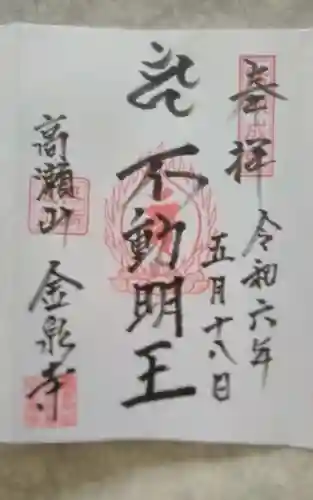 奉拝
令和六年
五月十八日
不動明王
高瀬山
金泉寺